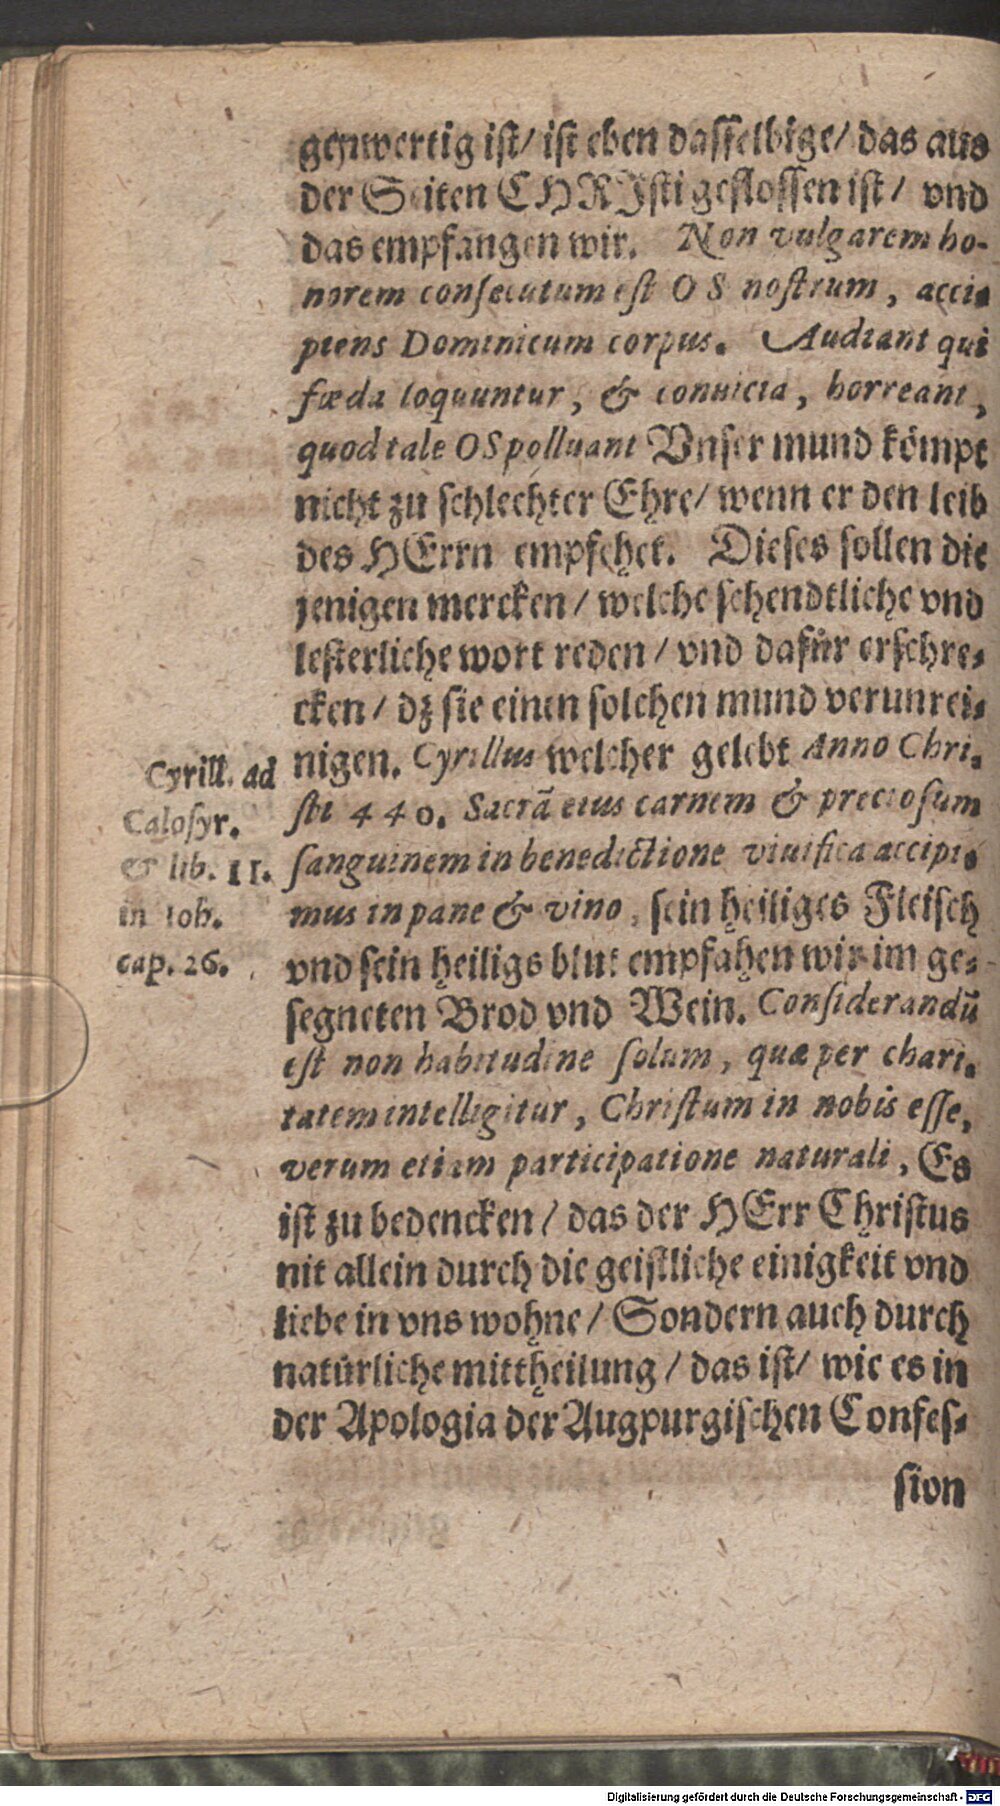 genwertig ist/ ist eben dasselbige/ das aus
der Seiten CHRIsti geflossen ist/ vnd
das empfangen wir. Non vulgarem ho-
norem consecutum est OS nostrum, acci-
piens Dominicum corpus. Audiant qui
fœda loquuntur, & conuicia, horreant,
quod tale OS polluant Vnser mund kömpt
nicht zu schlechter Ehre/ wenn er den leib
des HErrn empfehet. Dieses sollen die
jenigen mercken/ welche schendtliche vnd
lesterliche wort reden/ vnd dafür erschre-
cken/ dz sie einen solchen mund verunrei-
nigen. Cyrillus welcher gelebt Anno Chri-
sti 440. Sacrā eius carnem & preciosum
sanguinem in benedictione viuifica accipi-
mus in pane & vino, sein heiliges Fleisch
vnd sein heiligs blut empfahen wir im ge-
segneten Brod vnd Wein. Considerandū
est non habitudine solum, quæ per chari-
tatem intelligitur, Christum in nobis esse,
verum etiam participatione naturali, Es
ist zu bedencken/ das der HErr Christus
nit allein durch die geistliche einigkeit vnd
liebe in vns wohne/ Sondern auch durch
natürliche mittheilung/ das ist/ wie es in
der Apologia der Augpurgischen Confes-
sion
Cyrill. ad
Calosyr.
& lib. 11.
in Ioh.
cap. 26.
Digitalisierung gefördert durch die Deutsche Forschungsgemeinschaft - DFG